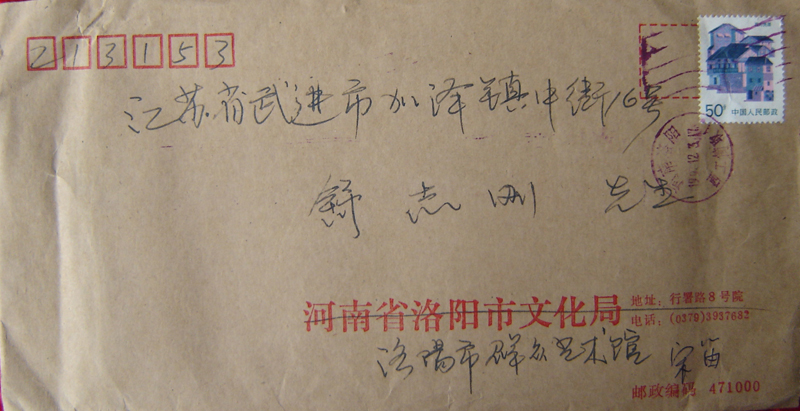 213153
50分 中国人民邮政
江苏省武进市加泽镇中街16号
舒志刚 先生
河南省洛阳市文化局 地址:行署路8号院
电话:(0379)3937682
洛阳市群众艺术馆 宋笛
邮政编码 471000